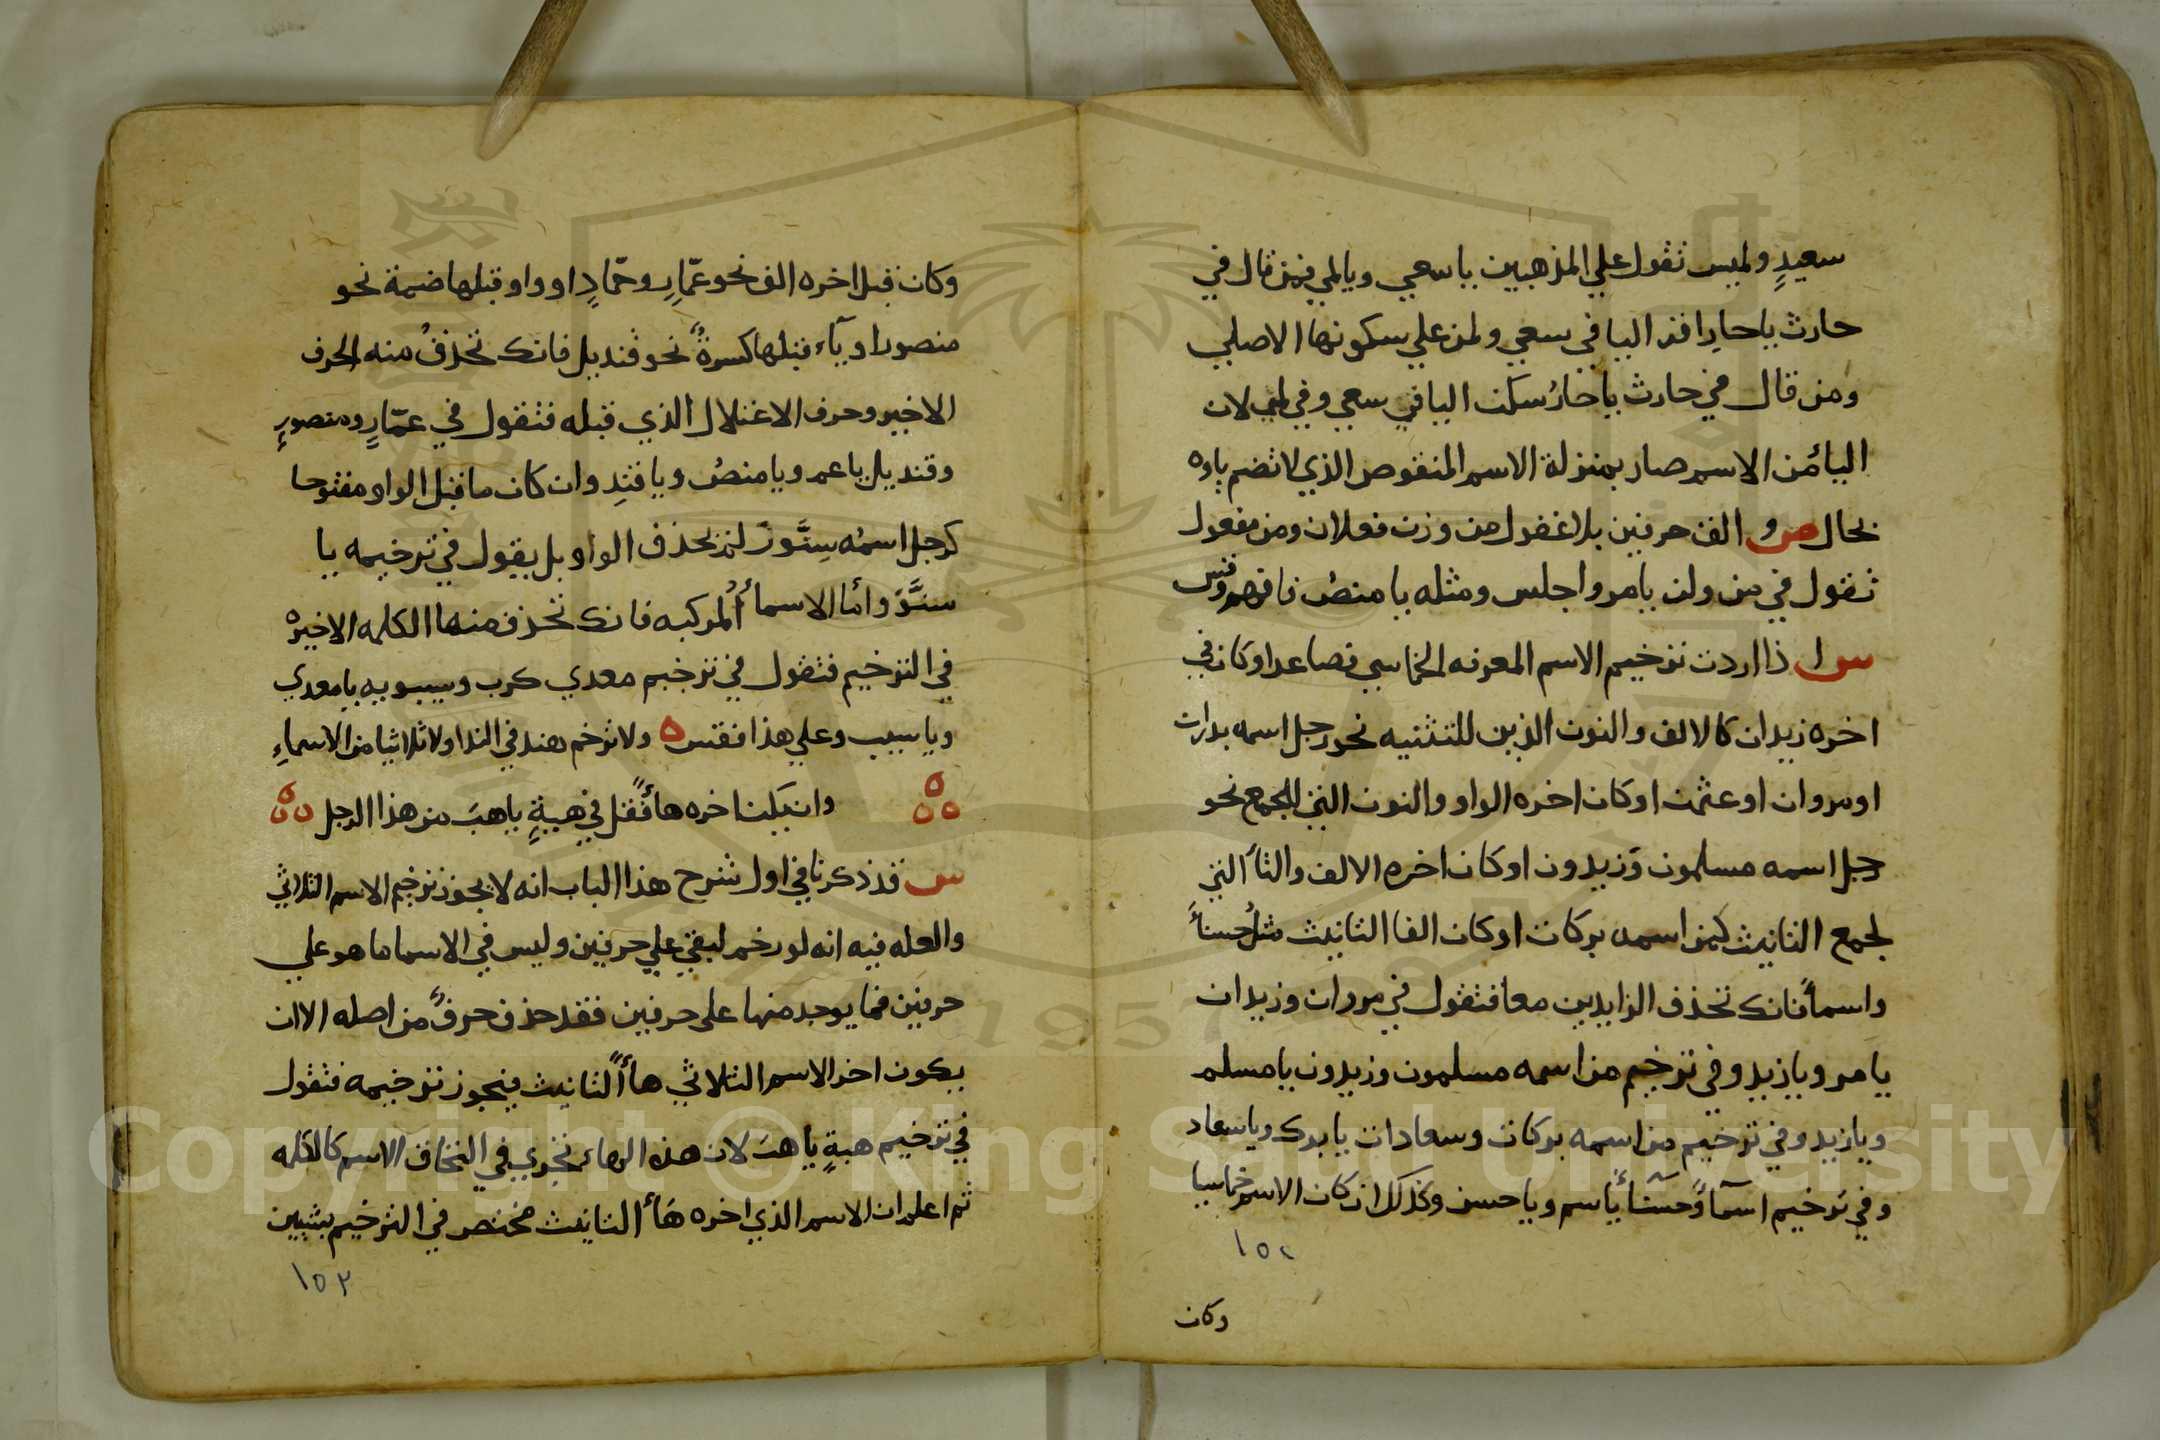 سعيدٍ ولميس تقول علي المذهبين يا سعي ويا لمي فمن قال في
حارث يا حارِ اقر اليا في سعي ولمي علي سكونها الاصلي
ومن قال في حارث يا حارُ سكن اليا في سعي وفي لمي لان
اليا من الاسم صار بمنزلة الاسم المنقوص الذي لا تضم ياوه
بحال ص والف حرفين بلا غفول من وزن فعلان ومن مفعول
تقول في مروان يا مرو اجلس ومثله يا منصُ فافهم وقس
س اذا اردت ترخيم الاسم المعرفه الخماسي فصاعدا وكان في
اخره زيدان كالالف والنون الذين للتثنيه نحو رجل اسمه بدران
او مروان او عثمن او كان اخره الواو والنون التي للجمع نحو
رجل اسمه مسلمون وزيدون او كان اخره الالف والتا التي
لجمع التانيث كمن اسمه بركات او كان الفا التانيث مثل حسنأ
واسمأ فانك تحذف الزايدين معا فتقول في مروان وزيدان
يا مر ويا زيد وفي ترخيم من اسمه مسلمون وزيدون يا مسلم
ويا زيد وفي ترخيم من اسمه بركات وسعادات يا برك ويا سعاد
وفي ترخيم اسمآ وحسنآ يأسم ويا حسن وكذلك ان كان الاسم خماسيا
١٥٢
وكان
وكان قبل اخره الف نحو عمّارٍ وحمّادٍ او واو قبلها ضمة نحو
منصور او يآء قبلها كسرةٌ نحو قنديل فانك تحذفُ منه الحرف
الاخير وحرف الاعتلال الذي قبله فتقول في عمّارٍ ومنصورٍ
وقنديل يا عم ويا منصُ ويا قندِ وان كان ما قبل الواو مفتوحا
كرجل اسمُه سِنَّور لم تحذف الواو بل يقول في ترخيمه يا
سنَّوَ وأما الاسمأ المركبه فانك تحذف منها الكلمه الاخيره
في الترخيم فتقول في ترخيم معدي كرب وسيبويه يا معدي
ويا سيب وعلي هذا فقس ه ولا ترخم هند في الندا ولا ثلاثيا من الاسماءِ
وان يكن اخره هأ فقل في هبةٍ يا هبَ من هذا الرجل
س قد ذكرنا في اول شرح هذا الباب انه لا يجوز ترخيم الاسم الثلاثي
والعله فيه انه لو رخم لبقي علي حرفين وليس في الاسما ما هو علي
حرفين فما يوجد منها على حرفين فقد حذف حرفٌ من اصله الا ان
يكون اخر الاسم الثلاثي هأ التانيث فيجوز ترخيمه فتقول
في ترخيم هبةٍ يا هبَ لان هذه الهاء تجري في التحاق الاسم كالكلمه
ثم اعلم ان الاسم الذي اخره هَأ التانيث مختص في الترخيم بشيين
١٥٣
Copyright © King Saud University
1957